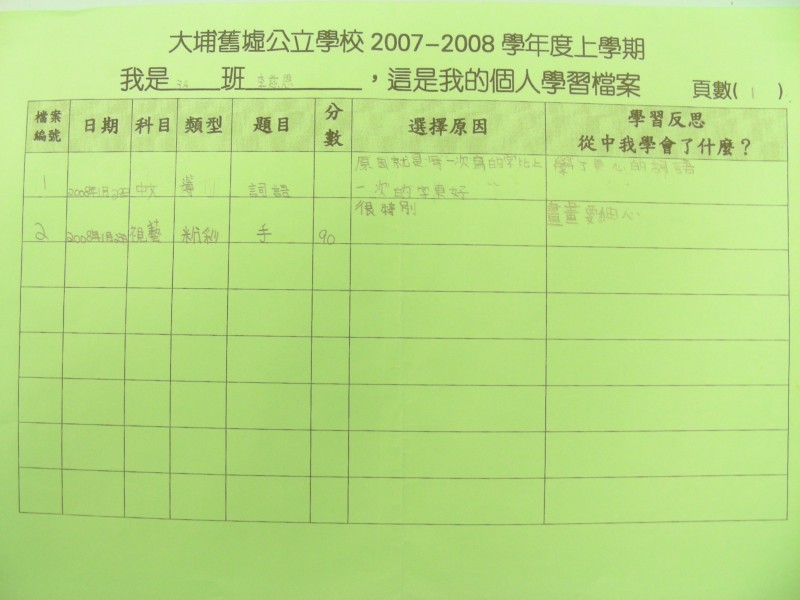 大埔舊墟公立學校 2007-2008 學年度上學期
我是 班 ，這是我的個人學習檔案 頁數( 1 )
檔案編號 日期 科目 類型 題目 分數 選擇原因 學習反思 從中我學會了什麼？
1 2008年1月2日 中文 詞語 原因就是每一次寫的字比上
一次的字更好 學了更 的詞語
2 2008年1月 視藝 手 90 很特別 畫畫要細心